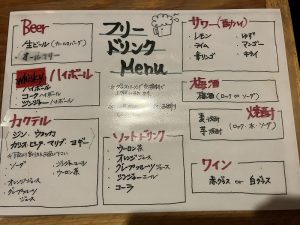 Beer
生ビール
オールフリー
フリー
ドリンク
Menu
サワー
レモン
ゆず
ライム
マンゴー
青リンゴ
Whisky ハイボール
ハイボール
コークハイボール
ジンジャーハイボール
梅酒
梅酒 (ロック or ソーダ)
焼酎
麦焼酎
芋焼酎
(ロック・水・ソーダ)
カクテル
ジン・ウォッカ
カシス・ピーチ・マリブ
ソーダ
ジンジャーエール
ウーロン茶
オレンジジュース
グレープフルーツ
ジュース
ソフトドリンク
ウーロン茶
オレンジジュース
グレープフルーツジュース
ジンジャーエール
コーラ
ワイン
赤グラス or 白グラス